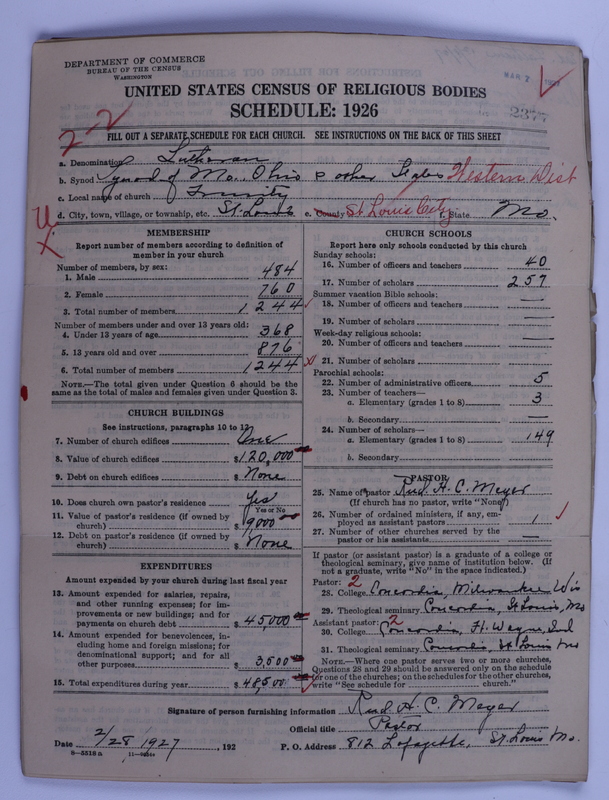 DEPARTMENT OF COMMERCE
BUREAU OF THE CENSUS
WASHINGTON
MAR 7 1927
UNITED STATES CENSUS OF RELIGIOUS BODIES
SCHEDULE: 1926
2377
2-2
FILL OUT A SEPARATE SCHEDULE FOR EACH CHURCH. SEE INSTRUCTIONS ON THE BACK OF THIS SHEET
a. Denomination Lutheran
b. Synod Synod of Mo., Ohio & other States Western Dist
c. Local name of church Trinity
d. City, town, village, or township, etc. St. Louis e. County St Louis City f. State Mo.
MEMBERSHIP
Report number of members according to definition of
member in your church
Number of members, by sex:
1. Male 484
2. Female 760
3. Total number of members 1244
Number of members under and over 13 years old:
4. Under 13 years of age 368
5. 13 years old and over 876
6. Total number of members 1244
NOTE.—The total given under Question 6 should be the
same as the total of males and females given under Question 3.
CHURCH BUILDINGS
See instructions, paragraphs 10 to 12
7. Number of church edifices One
8. Value of church edifices $120,000
9. Debt on church edifices $ None
10. Does church own pastor's residence Yes
Yes or No
11. Value of pastor's residence (if owned by
church) $ 9000
12. Debt on pastor's residence (if owned by
church) $ None
EXPENDITURES
Amount expended by your church during last fiscal year
13. Amount expended for salaries, repairs,
and other running expenses; for im-
provements or new buildings; and for
payments on church debt $ 45,000
14. Amount expended for benevolences, in-
cluding home and foreign missions; for
denominational support; and for all
other purposes $ 3,500
15. Total expenditures during year $ 48,500
CHURCH SCHOOLS
Report here only schools conducted by this church
Sunday schools:
16. Number of officers and teachers 40
17. Number of scholars 257
Summer vacation Bible schools:
18. Number of officers and teachers —
19. Number of scholars —
Week-day religious schools:
20. Number of officers and teachers —
21. Number of scholars —
Parochial schools:
22. Number of administrative officers 5
23. Number of teachers—
a. Elementary (grades 1 to 8) 3
b. Secondary —
24. Number of scholars—
a. Elementary (grades 1 to 8) 149
b. Secondary
PASTOR
25. Name of pastor Rud. H. C. Meyer
(If church has no pastor, write "None")
26. Number of ordained ministers, if any, em-
ployed as assistant pastors 1
27. Number of other churches served by the
pastor or his assistants —
If pastor (or assistant pastor) is a graduate of a college or
theological seminary, give name of institution below. (If
not a graduate, write "No" in the space indicated.)
Pastor: 2
28. College Concordia, Milwaukee Wis
29. Theological seminary Concordia, St Louis, Mo
Assistant pastor: 2
30. College Concordia, Ft. Wayne, Ind
31. Theological seminary Concordia, St Louis Mo
NOTE.—Where one pastor serves two or more churches,
Questions 28 and 29 should be answered only on the schedule
for one of the churches; on the schedules for the other churches,
write "See schedule for church."
Signature of person furnishing information Rud. H. C. Meyer
Official title Pastor
Date 2/28/1927, 192 P. O. Address 812 Lafayette, St. Louis Mo.
8—5518a